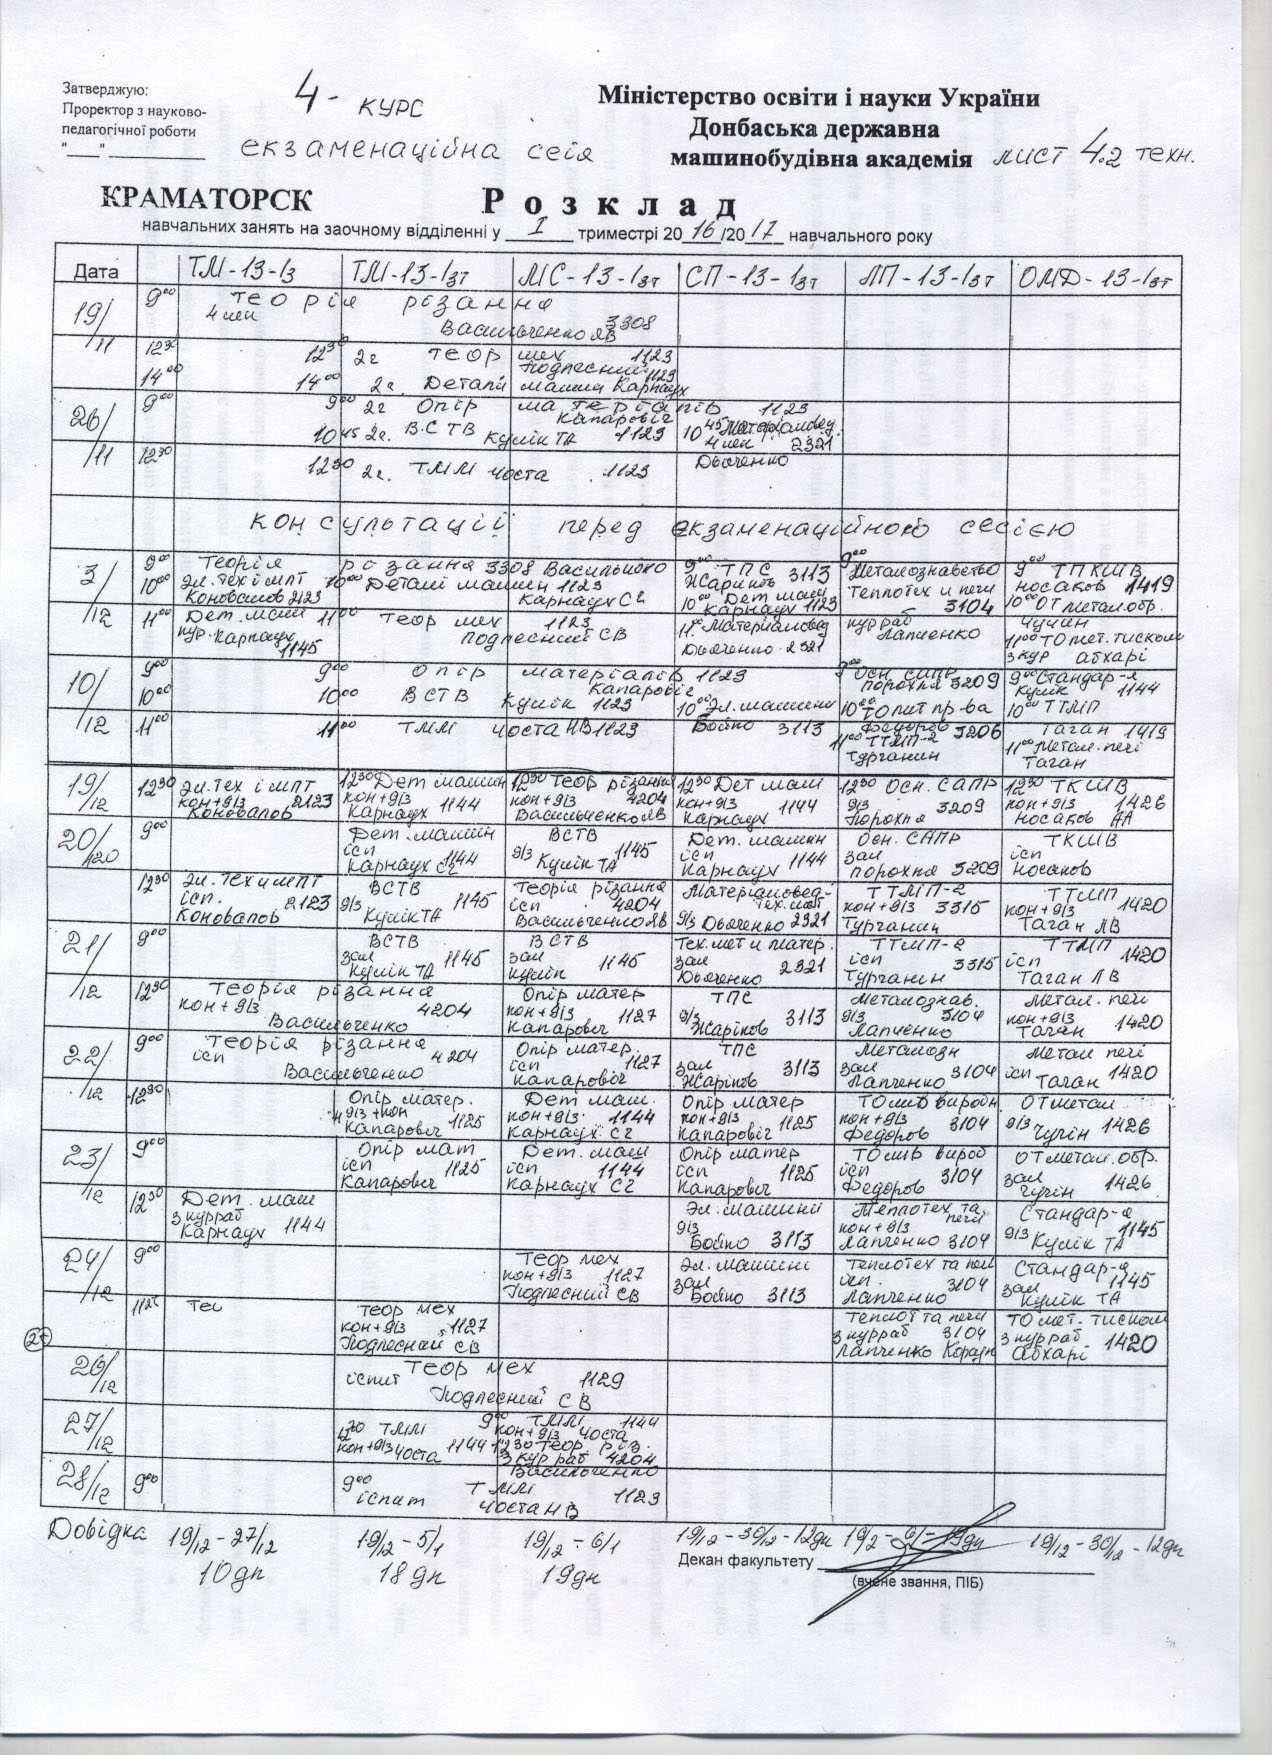 Затверджую:
Проректор з науково-
педагогічної роботи
"___" ___________
4 - курс
екзаменаційна сесія
Міністерство освіти і науки України
Донбаська державна
машинобудівна академія
лист 4.2 техн.
КРАМАТОРСК
Розклад
навчальних занять на заочному відділенні у I триместрі 2016/2017 навчального року
Дата ТМ-13-1з ТМ-13-1зт МС-13-1зт СП-13-1зт ЛП-13-1зт ОМД-13-1зт
19/11 9⁰⁰ Теорія різання
Васильченко ЯВ 3308
12³⁰ 12³⁰ 2г теор мех 1123
Подлесний
14⁰⁰ 14⁰⁰ 2г. Деталі машин Карнаух 1123
26/11 9⁰⁰ 9⁰⁰ 2г Опір матеріалів 1123
Капарович
10⁴⁵ 2г. ВСТВ Кулік ТА 1123 10⁴⁵ 2321
12³⁰ 12³⁰ 2г. ТММ Чоста 1123 Дьяченко
консультації перед екзаменаційною сесією
3/12 9⁰⁰ Теорія різання 3308 9⁰⁰ ТПС 3113 9⁰⁰ Металознавство 9⁰⁰ ТПКШВ
10⁰⁰ Эл.тех і МПТ 10⁰⁰ Деталі машин 1123 Жаріков Теплотех и печи Носаков 1419
Коновалов 2123 Карнаух СГ 10⁰⁰ Дет маш Карнаух 1123 3104 10⁰⁰ ОТ метал.обр.
11⁰⁰ Дет.маш 11⁰⁰ теор мех 1123 11⁰⁰ Материаловед кур раб
кур. Карнаух 1145 Подлесний СВ Дьяченко 2321 Лапченко 11⁰⁰ ТО мет. тиском
3 кур Абхарі
10/12 9⁰⁰ 9⁰⁰ Опір матеріалів 1123 9⁰⁰ Осн. САПР 9⁰⁰ Стандар-я
Капарович Порохня 3209 Кулік 1144
10⁰⁰ 10⁰⁰ ВСТВ Кулік 1123 10⁰⁰ Эл.машини 10⁰⁰ ТО лит пр-ва 10⁰⁰ ТТМП
11⁰⁰ 11⁰⁰ ТММ Чоста НВ 1123 Бойко 3113 Федоров 3206 Таган 1419
11⁰⁰ ТТМП-2 11⁰⁰ Метал. печі
Турганин Таган
19/12 12³⁰ Эл.тех і МПТ 12³⁰ Дет машин 12³⁰ Теор різання 12³⁰ Дет маш 12³⁰ Осн. САПР 12³⁰ ТКШВ
кон+д/з 2123 кон+д/з 1144 кон+д/з 4204 кон+д/з 1144 д/з 3209 кон+д/з 1426
Коновалов Карнаух Васильченко ЯВ Карнаух Порохня Носаков АА
20/12 9⁰⁰ Дет.машин ВСТВ Дет. машин Осн. САПР ТКШВ
ісп 1144 д/з 1145 ісп 1144 зал 3209 ісп
Карнаух СГ Кулік ТА Карнаух Порохня Носаков
12³⁰ Эл.тех и МПТ ВСТВ Теорія різання ТТМП-2 ТТМП
ісп. 2123 д/з 1145 ісп 4204 кон+д/з 3315 кон+д/з 1420
Коновалов Кулік ТА Васильченко ЯВ д/з Дьяченко 2321 Турганин Таган ЛВ
21/12 9⁰⁰ ВСТВ ВСТВ Тех.мет и матер. ТТМП-2 ТТМП
зал 1145 зал 1145 зал 2321 ісп 3315 ісп 1420
Кулік ТА Кулік Дьяченко Турганин Таган ЛВ
12³⁰ Теорія різання Опір матер ТПС Металознав. Метал. печі
кон+д/з 4204 кон+д/з 1127 д/з 3113 д/з 3104 кон+д/з 1420
Васильченко Капарович Жаріков Лапченко Таган
22/12 9⁰⁰ Теорія різання Опір матер. ТПС Металозн Метал печі
ісп 4204 ісп 1127 зал 3113 зал 3104 ісп 1420
Васильченко Капарович Жаріков Лапченко Таган
12³⁰ Опір матер. Дет маш. Опір матер ТО лив виробн. ОТ метал
д/з+кон 1125 кон+д/з 1144 кон+д/з 1125 кон+д/з 3104 д/з 1426
Капарович Карнаух СГ Капарович Федоров Чучін
23/12 9⁰⁰ Опір мат Дет. маш Опір матер ТО лив вироб ОТ метал. обр.
ісп 1125 ісп 1144 ісп 1125 ісп 3104 зал 1426
Капарович Карнаух СГ Капарович Федоров Чучін
12³⁰ Дет. маш Эл. машини Теплотех та печі Стандар-я
з курраб 1144 д/з кон+д/з д/з 1145
Карнаух Бойко 3113 Лапченко 3104 Кулік ТА
24/12 9⁰⁰ Теор мех Эл. машини Теплотех та печі Стандар-я
кон+д/з 1127 зал ісп. 3104 зал 1145
Подлесний СВ Бойко 3113 Лапченко Кулік ТА
Тес теор мех Теплот та печі ТО мет. тиском
кон+д/з 1127 з курраб 3104 з курраб 1420
Подлесний СВ Лапченко Абхарі
26/12 Теор мех
іспит 1129
Подлесний СВ
27/12 12³⁰ ТММ 9⁰⁰ ТММ 1144
кон+д/з Чоста 1144 кон+д/з Чоста
12³⁰ Теор. різ.
з кур раб 4204
Васильченко
28/12 9⁰⁰ 9⁰⁰ ТММ 1129
іспит Чоста НВ
Довідка 19/12-27/12 19/12-5/1 19/12-6/1 19/12-30/12-12дн 19дн 19/12-30/12-12дн
10дн 18дн 19дн
Декан факультету
(вчене звання, ПІБ)